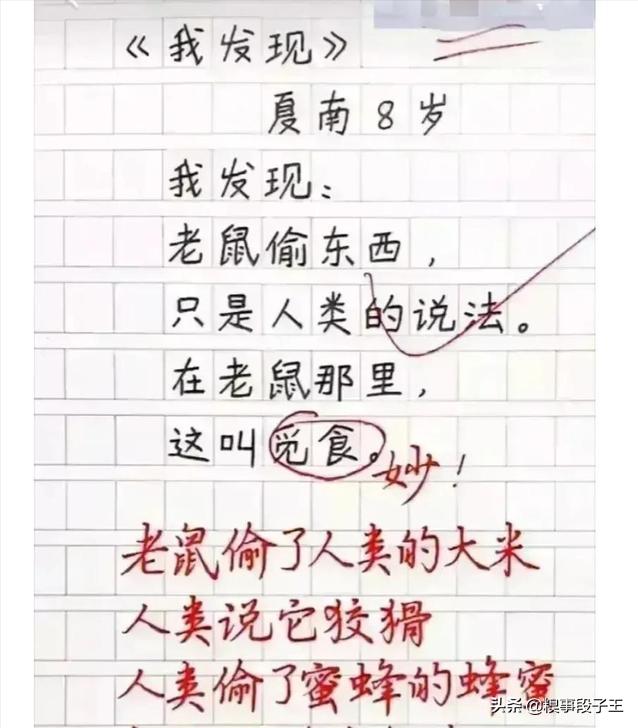 《我发现》
夏南8岁
我发现：
老鼠偷东西，
只是人类的说法。
在老鼠那里，
这叫觅食。
妙！
老鼠偷了人类的大米
人类说它狡猾
人类偷了蜜蜂的蜂蜜
头条 @糗事段子王